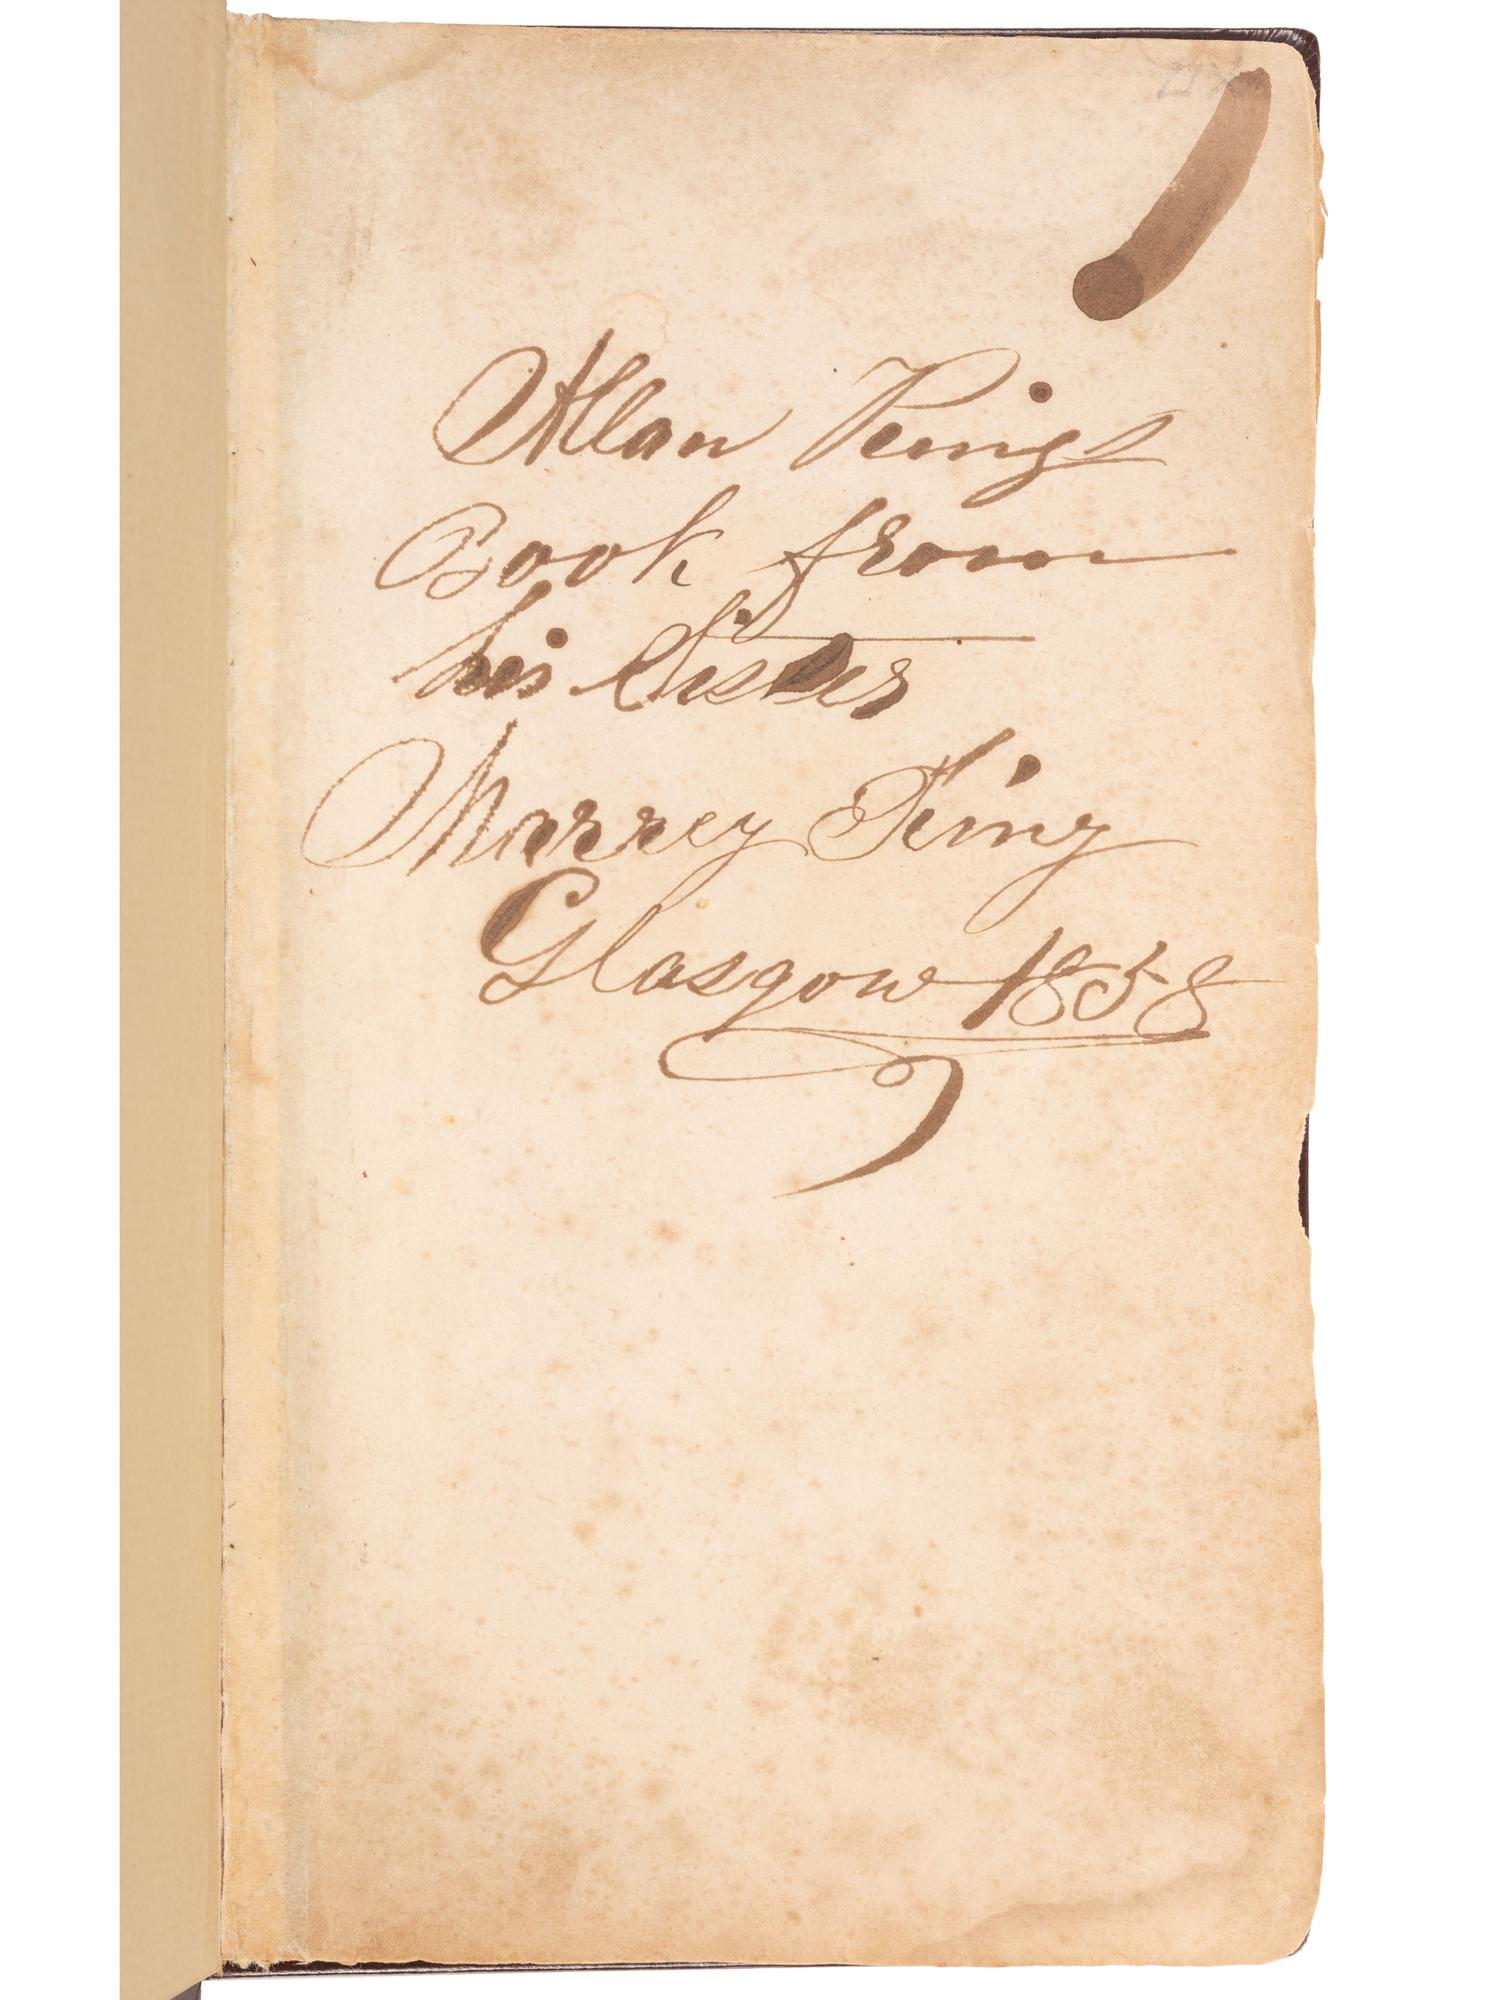 Allan Kings
Book from
his Sister
Marrey King
Glasgow 1858